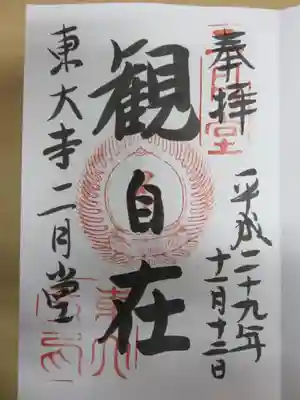 奉拝
二月堂
平成二十九年
十一月十二日
観自在
東大寺二月堂